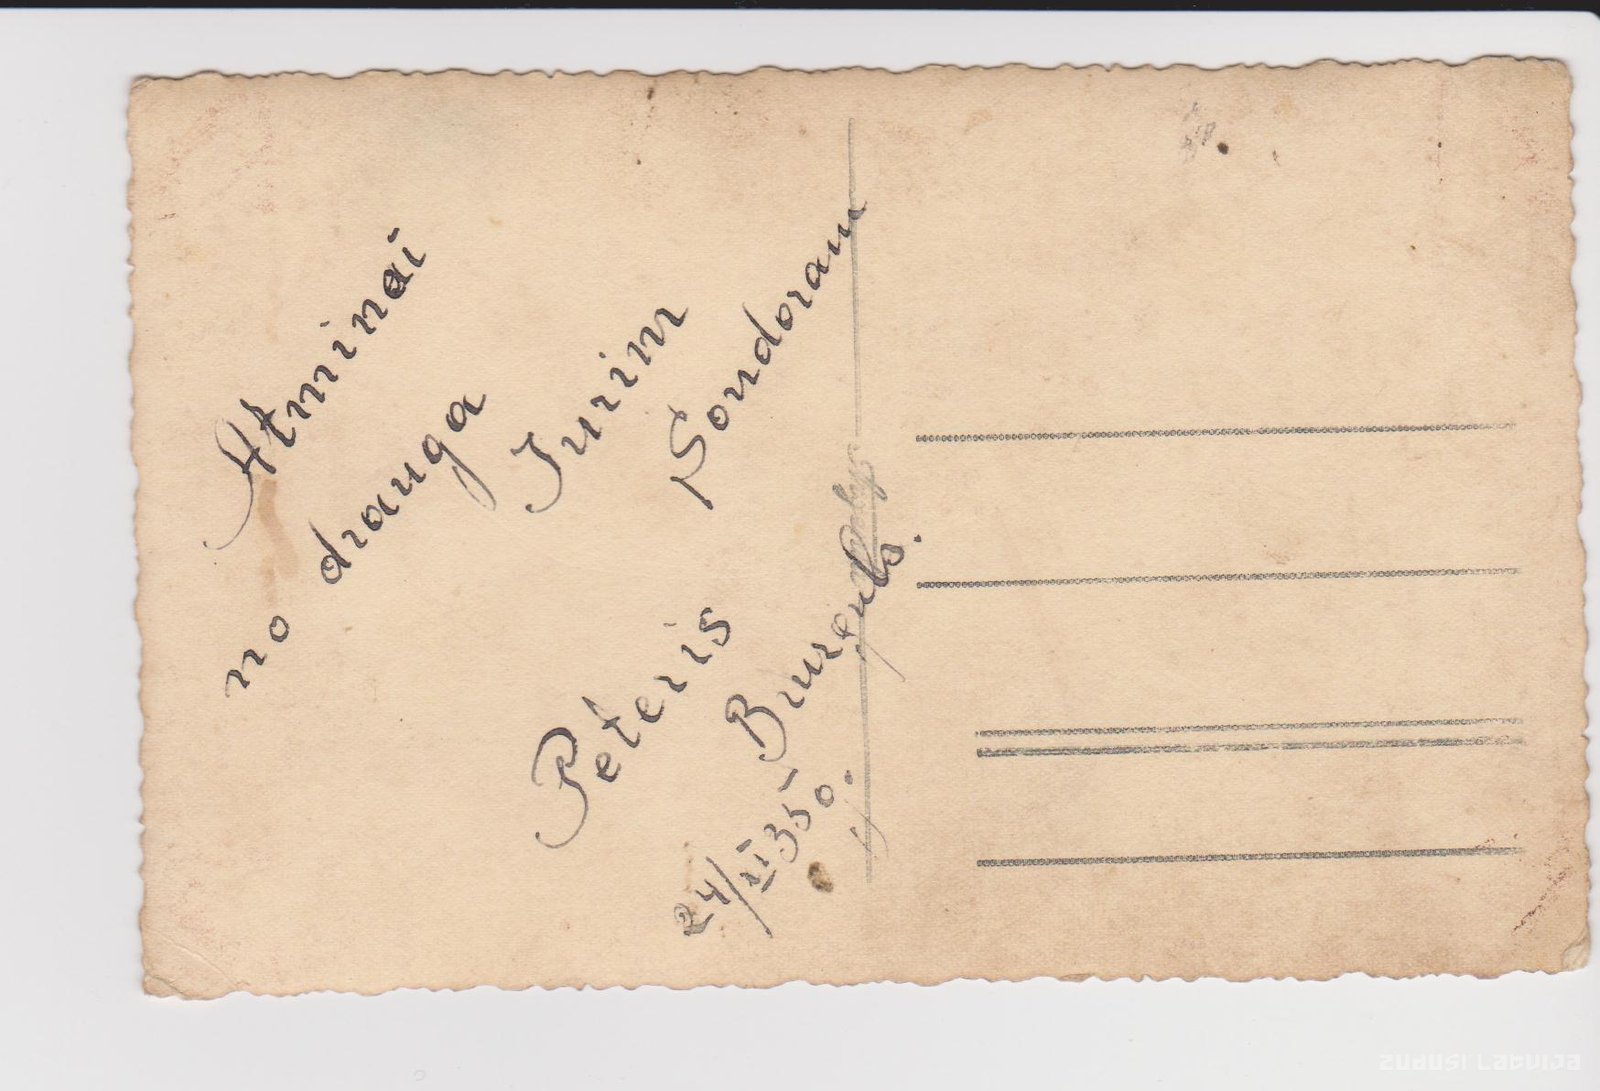 Atminai
no drauga Jurim
Sondoram
Peteris
24/II 35
zudusi Latvija